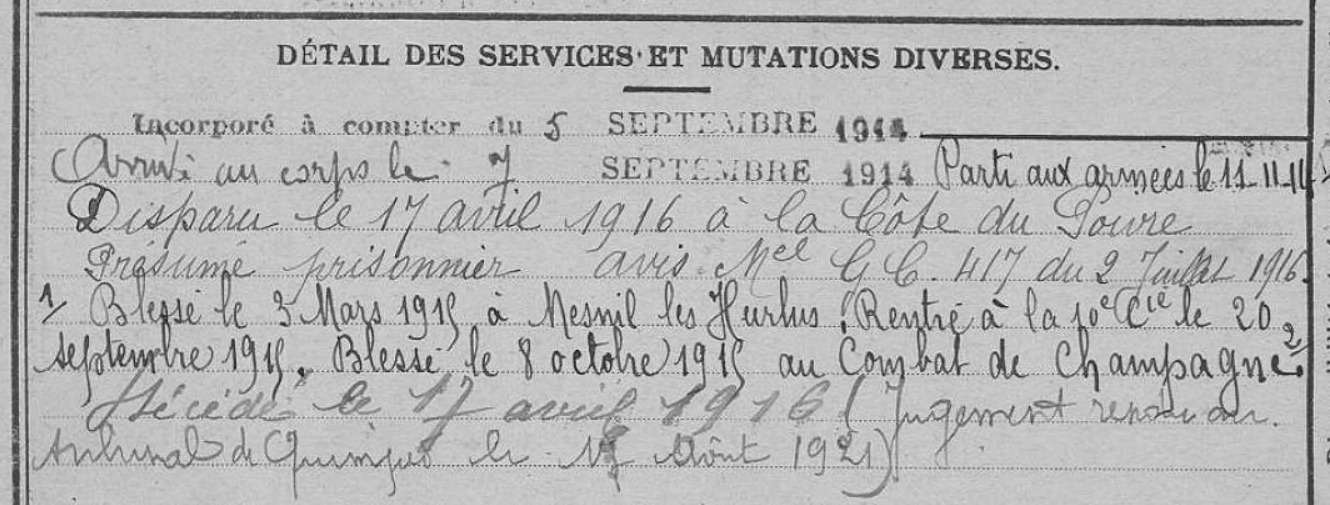 DÉTAIL DES SERVICES ET MUTATIONS DIVERSES.
Incorporé à compter du 5 SEPTEMBRE 1914
Arrivé au corps le 7 SEPTEMBRE 1914 Parti aux armées le 11-11-14
Disparu le 17 avril 1916 à la Côte du Poivre
Présumé prisonnier avis Mel G C. 417 du 2 Juillet 1916.
1/ Blessé le 3 Mars 1915 à Mesnil les Hurlus. Rentré à la 10e Cie le 20
septembre 1915. Blessé le 8 octobre 1915 au Combat de Champagne. 2/
Décédé le 17 avril 1916 (Jugement rendu au
tribunal de Quimper le 17 Août 1921)